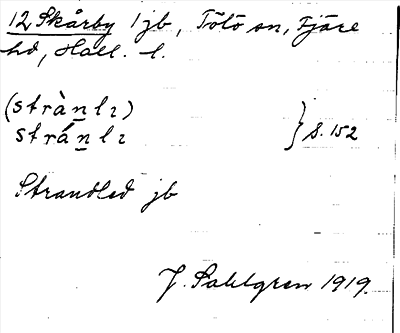 12 Skårby 1 jb, Tölö sn, Fjäre
hd, Hall. l.
(strànlı)
stránlı } S. 152
Strandled jb
J. Sahlgren 1919.